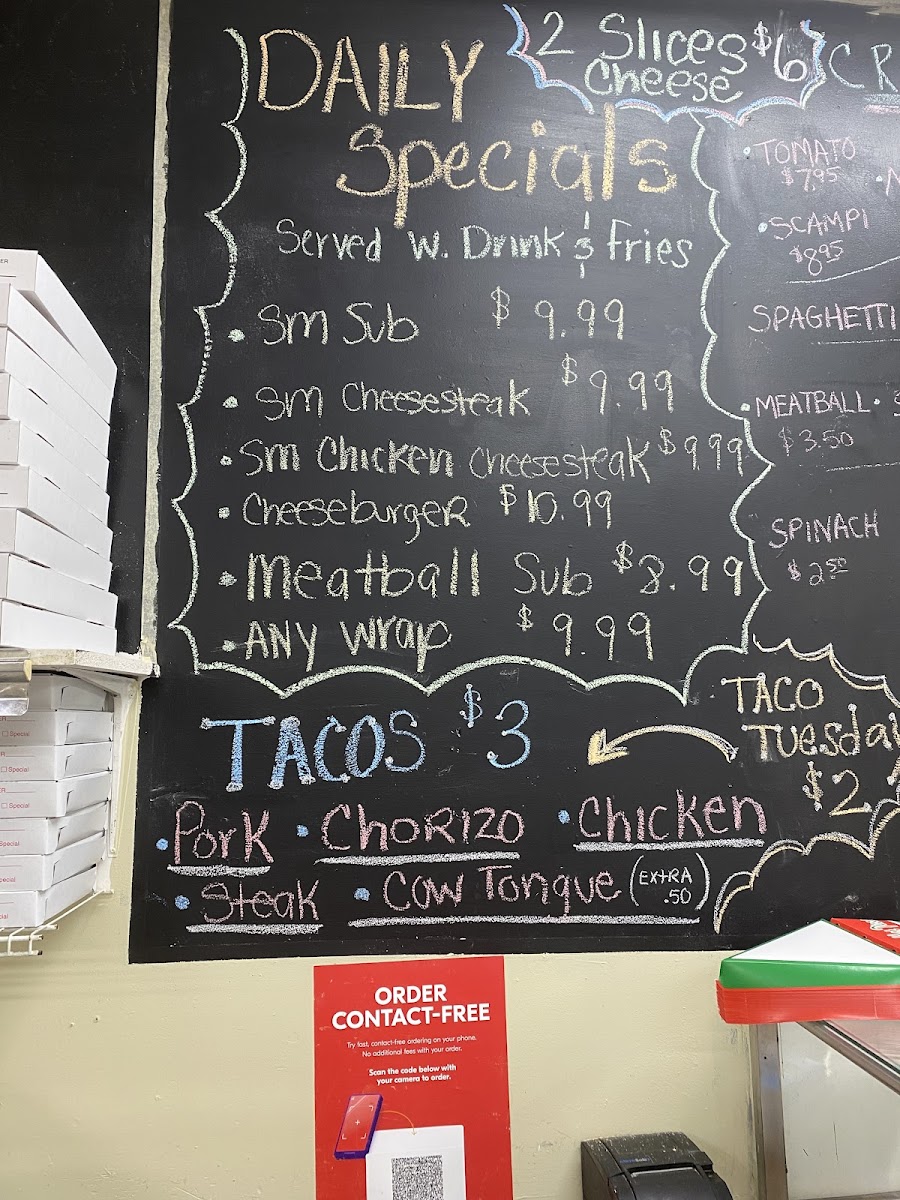 DAILY
Specials
Served W. Drink & Fries
• Sm Sub $9.99
• Sm Cheesesteak $9.99
• Sm Chicken Cheesesteak $9.99
• CheeseburgeR $10.99
• Meatball Sub $8.99
• ANY Wrap $9.99
2 Slices $6
Cheese
CR
• TOMATO
$7.95
• SCAMPI
$8.95
SPAGHETTI
• MEATBALL •
$3.50
SPINACH
$2.50
TACO
Tuesday
$2
TACOS $3
• PorK • CHORIZO • Chicken
• Steak • COW Tongue (EXTRA .50)
ORDER
CONTACT-FREE
Try fast, contact-free ordering on your phone.
No additional fees with your order.
Scan the code below with
your camera to order.
Special
Special
Special
Special
Special